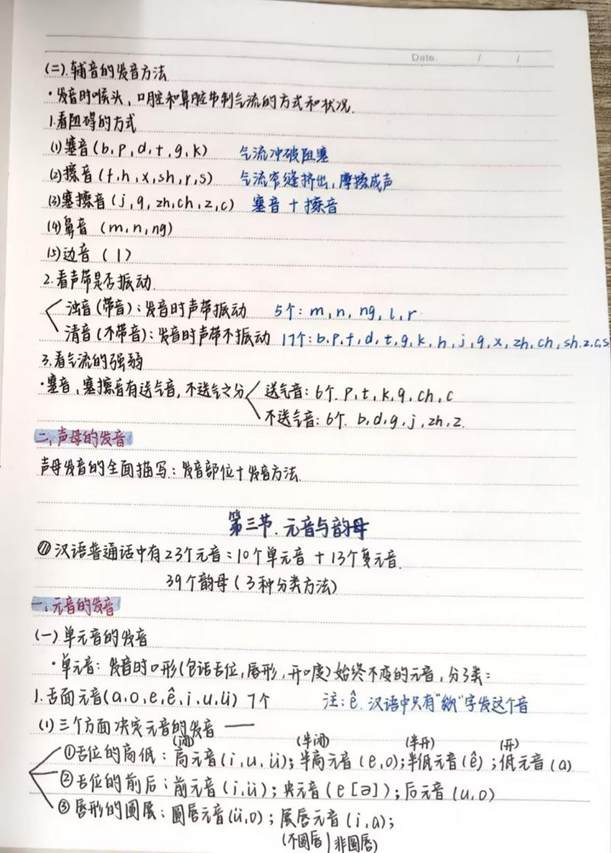 Date. / /
(二).辅音的发音方法
·发音时喉头,口腔和鼻腔节制气流的方式和状况.
1.看阻碍的方式
(1)塞音(b,p,d,t,g,k) 气流冲破阻塞
(2)擦音(f,h,x,sh,r,s) 气流窄缝挤出,摩擦成声
(3)塞擦音(j,q,zh,ch,z,c) 塞音+擦音
(4)鼻音(m,n,ng)
(5)边音(l)
2.看声带是否振动
浊音(带音):发音时声带振动 5个:m,n,ng,l,r
清音(不带音):发音时声带不振动 17个:b.p.f,d,t,g,k,h,j,q,x,zh,ch,sh.z.c,s
3.看气流的强弱
·塞音,塞擦音有送气音,不送气之分 送气音:6个.p,t,k,q,ch,c
不送气音:6个.b,d,g,j,zh,z.
二,声母的发音
声母发音的全面描写:发音部位+发音方法.
第三节.元音与韵母
汉语普通话中有23个元音:10个单元音+13个复元音.
39个韵母(3种分类方法)
一,元音的发音
(一)单元音的发音
·单元音:发音时口形(包括舌位,唇形,开口度)始终不变的元音,分3类:
1.舌面元音(a,o,e,ê,i,u,ü)7个 注:ê.汉语中只有"欸"字发这个音
(1)三个方面决定元音的发音——
(闭) (半闭) (半开) (开)
①舌位的高低:高元音(i,u,ü);半高元音(e,o);半低元音(ê);低元音(a)
②舌位的前后:前元音(i,ü);央元音(e[ə]);后元音(u,o)
③唇形的圆展:圆唇元音(ü,o);展唇元音(i,a);
(不圆唇/非圆唇)